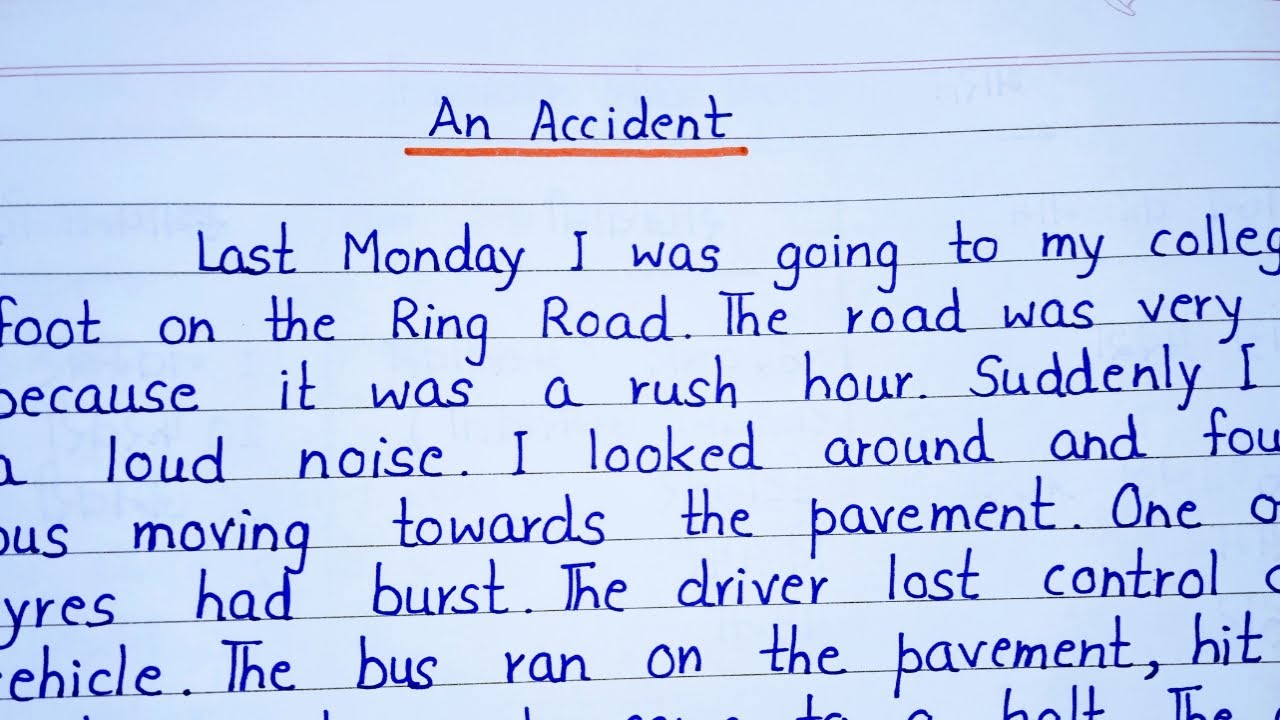 An Accident
Last Monday I was going to my colleg
foot on the Ring Road. The road was very
because it was a rush hour. Suddenly I
a loud noise. I looked around and fou
bus moving towards the pavement. One o
yres had burst. The driver lost control o
ehicle. The bus ran on the pavement, hit
to a halt. The